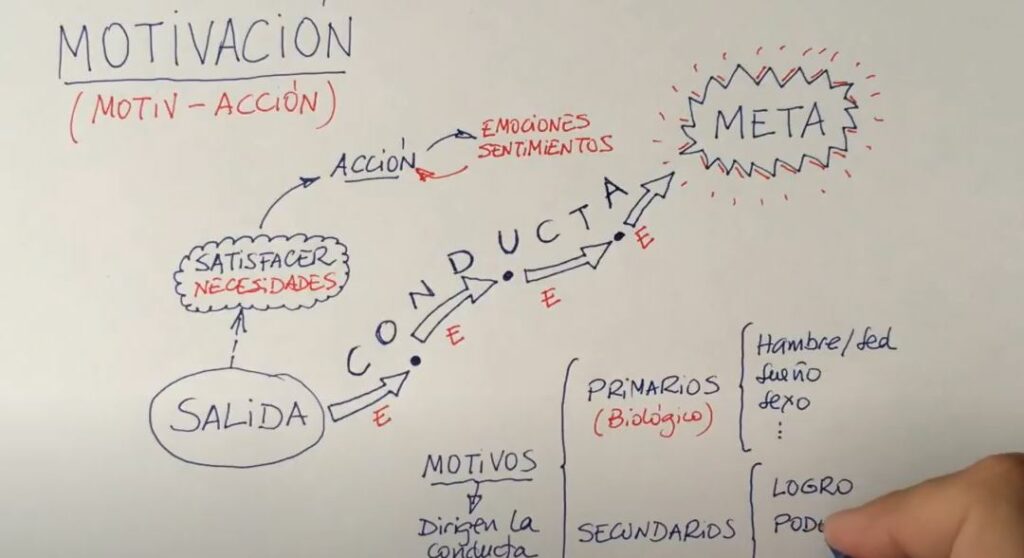 MOTIVACIÓN
(MOTIV-ACCIÓN)
ACCIÓN
EMOCIONES
SENTIMIENTOS
META
SATISFACER
NECESIDADES
CONDUCTA
SALIDA
E
E
E
E
MOTIVOS
Dirigen la
conducta
PRIMARIOS
(Biológico)
Hambre/sed
sueño
sexo
⋮
SECUNDARIOS
LOGRO